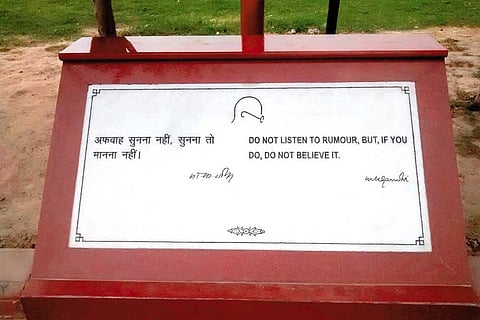 अफवाह सुनना नहीं, सुनना तो
मानना नहीं।
मो० क० गांधी
DO NOT LISTEN TO RUMOUR, BUT, IF YOU
DO, DO NOT BELIEVE IT.
mkgandhi